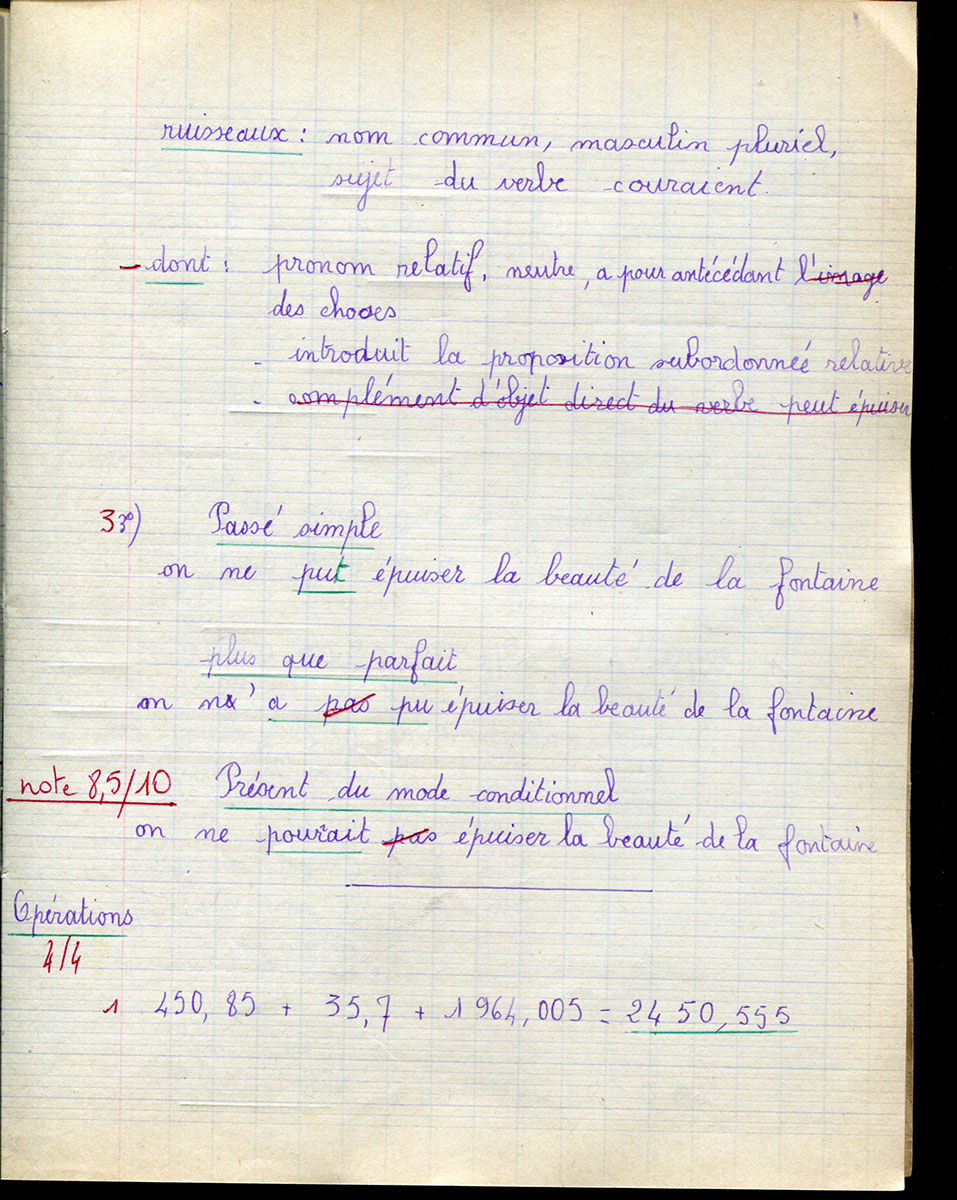 ruisseaux : nom commun, masculin pluriel,
sujet du verbe couraient.
- dont : pronom relatif, neutre, a pour antécédant l'image
des choses
- introduit la proposition subordonneé relative
- complément d'objet direct du verbe peut épuiser
3 3°) Passé simple
on ne put épuiser la beauté de la fontaine
plus que parfait
on n' a pas pu épuiser la beauté de la fontaine
note 8,5/10 Présent du mode conditionnel
on ne pourait pas épuiser la beauté de la fontaine
Opérations
4/4
1 450,85 + 35,7 + 1 964,005 = 24 50,555